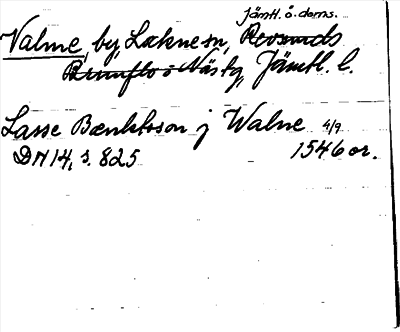 Jämtl. ö. doms.
Valme, by, Lockne sn, Revsunds
Brunflo o Näs tg, Jämtl. l.
Lasse Bænktsson j Walne 4/9
DN 14, s. 825 1546 or.